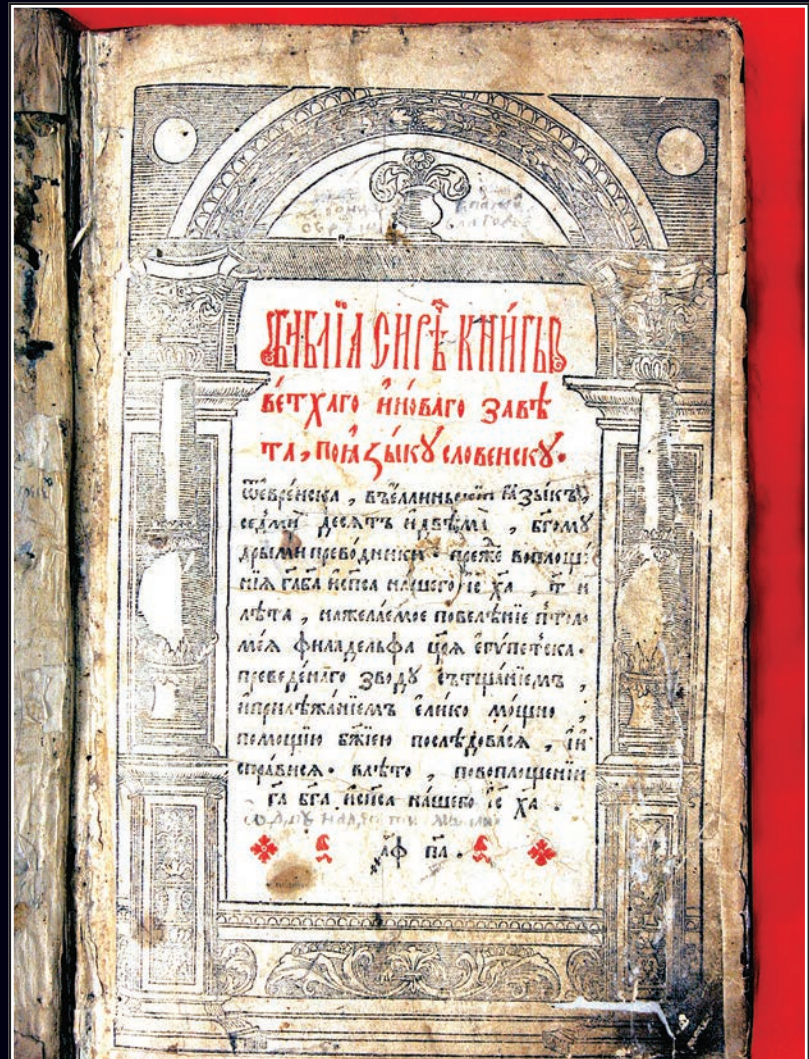 БИ́БЛЇА СИРѢ́Ч КНИ́ГЫ
ВЕ́ТХАГО И҆НО́ВАГО ЗАВѢ́
ТА, ПОꙖ҆ЗЫ́КУ СЛОВЕНСКУ.
ѿе҆вре́йска, въе҆́ллиньскїи ꙗ҆зы́къ,
се́дмиⷨ десѧтъ и҆двѣма̀, бг҃ому
дрыми преводники. преже воплощ́е
нїѧ гд҃а бг҃а и҆сп҃са нашего і҆с х҃а, т҃ и
лѣта, нажела́емое повелѣнїе птоло
ме́ѧ филаде́льфа цр҃ѧ є҆гѵпетска.
преведе́наго зводу сътща́нїемъ,
и҆прилѣжа́нїемъ є҆ли́ко мощно,
помощїю бж҃їею послѣдовасѧ, и҆и
спра́висѧ. влѣто, повоплощенїи
га҃ бг҃а и҆сп҃са на́шего і҆с х҃а.
҂а҃ф п҃а.